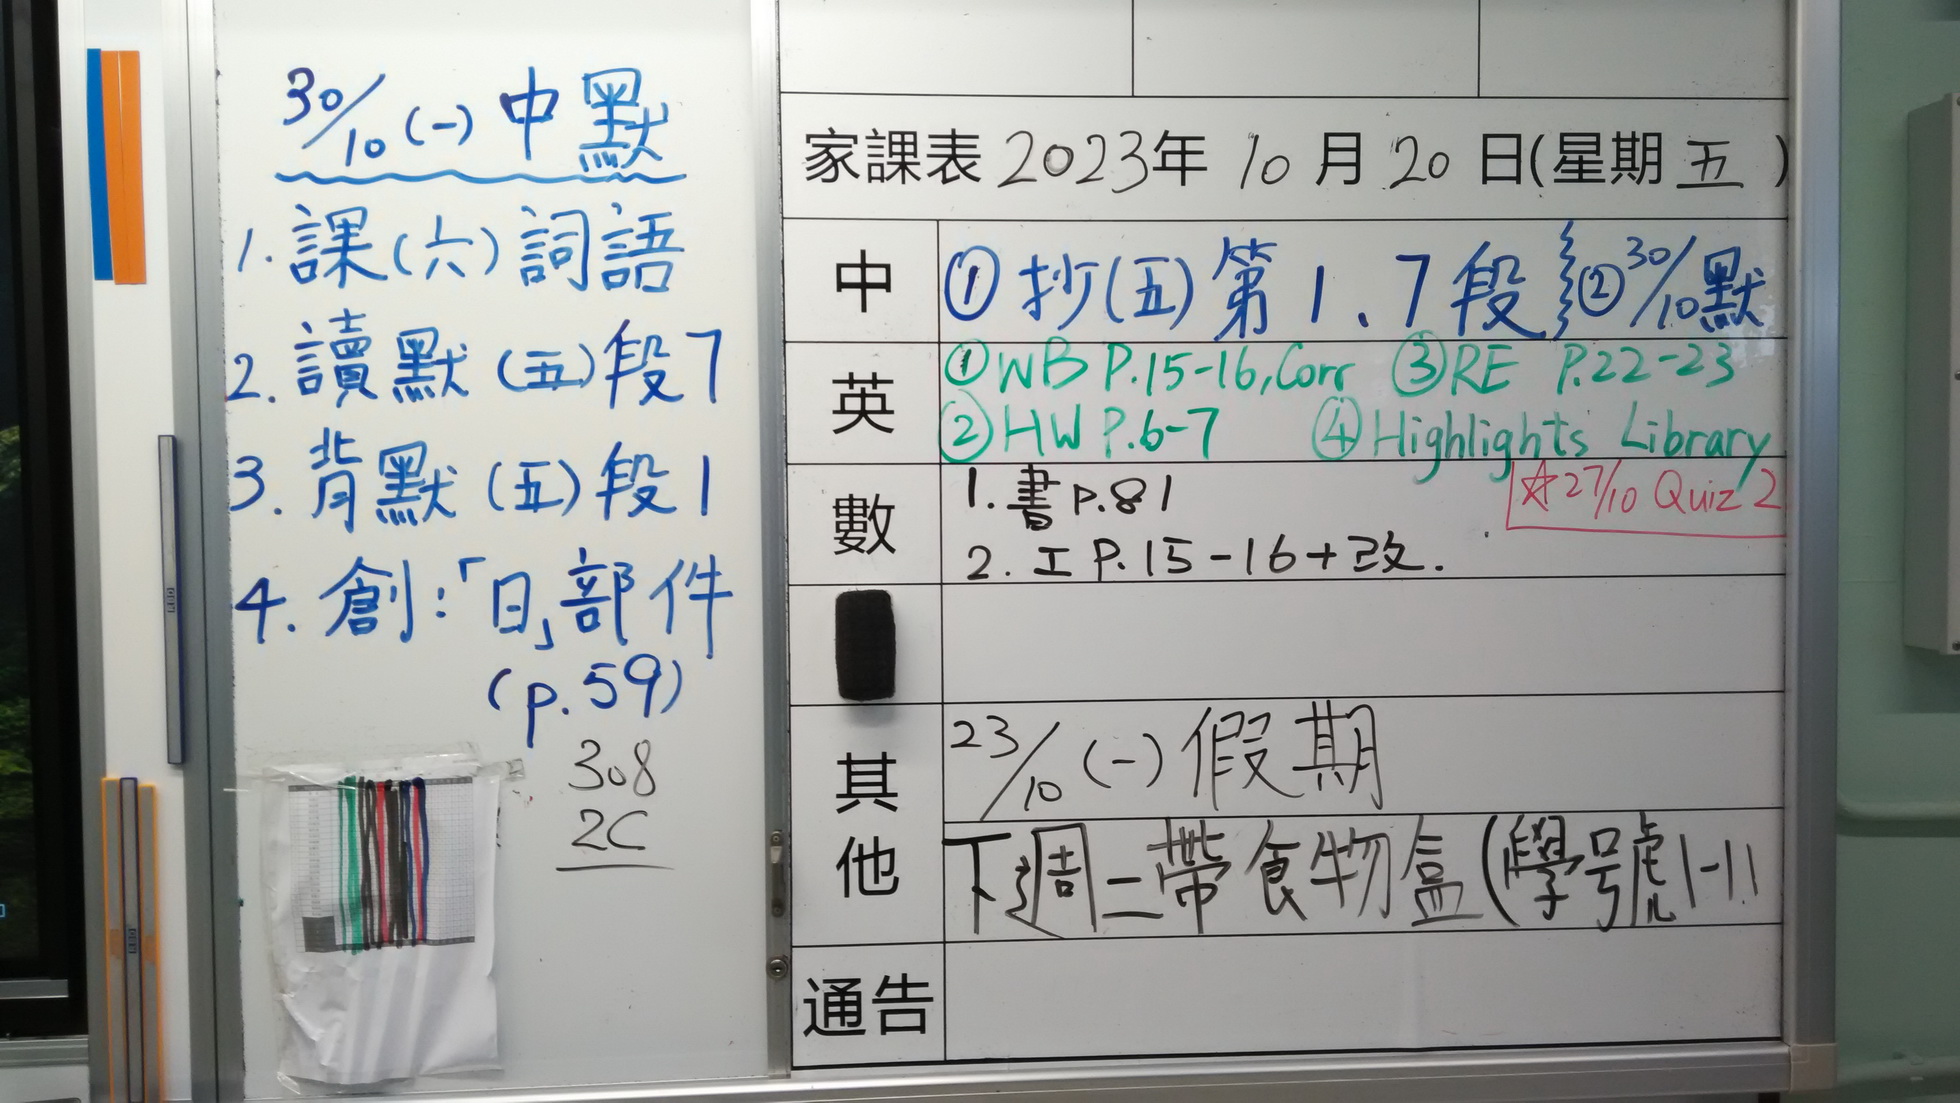 30/10 (一) 中默
1. 課(六)詞語
2. 讀默(五)段7
3. 背默(五)段1
4. 創:「日」部件
(p.59)
308
2C
家課表 2023年 10 月 20 日(星期 五 )
中 ① 抄(五)第1.7段 ② 30/10默
英 ① WB P.15-16, Corr ③ RE P.22-23
② HW P.6-7 ④ Highlights Library
☆27/10 Quiz 2
數 1. 書 p.81
2. 工 P.15-16+改.
其他 23/10 (一) 假期
下週二帶食物盒(學號1-11
通告